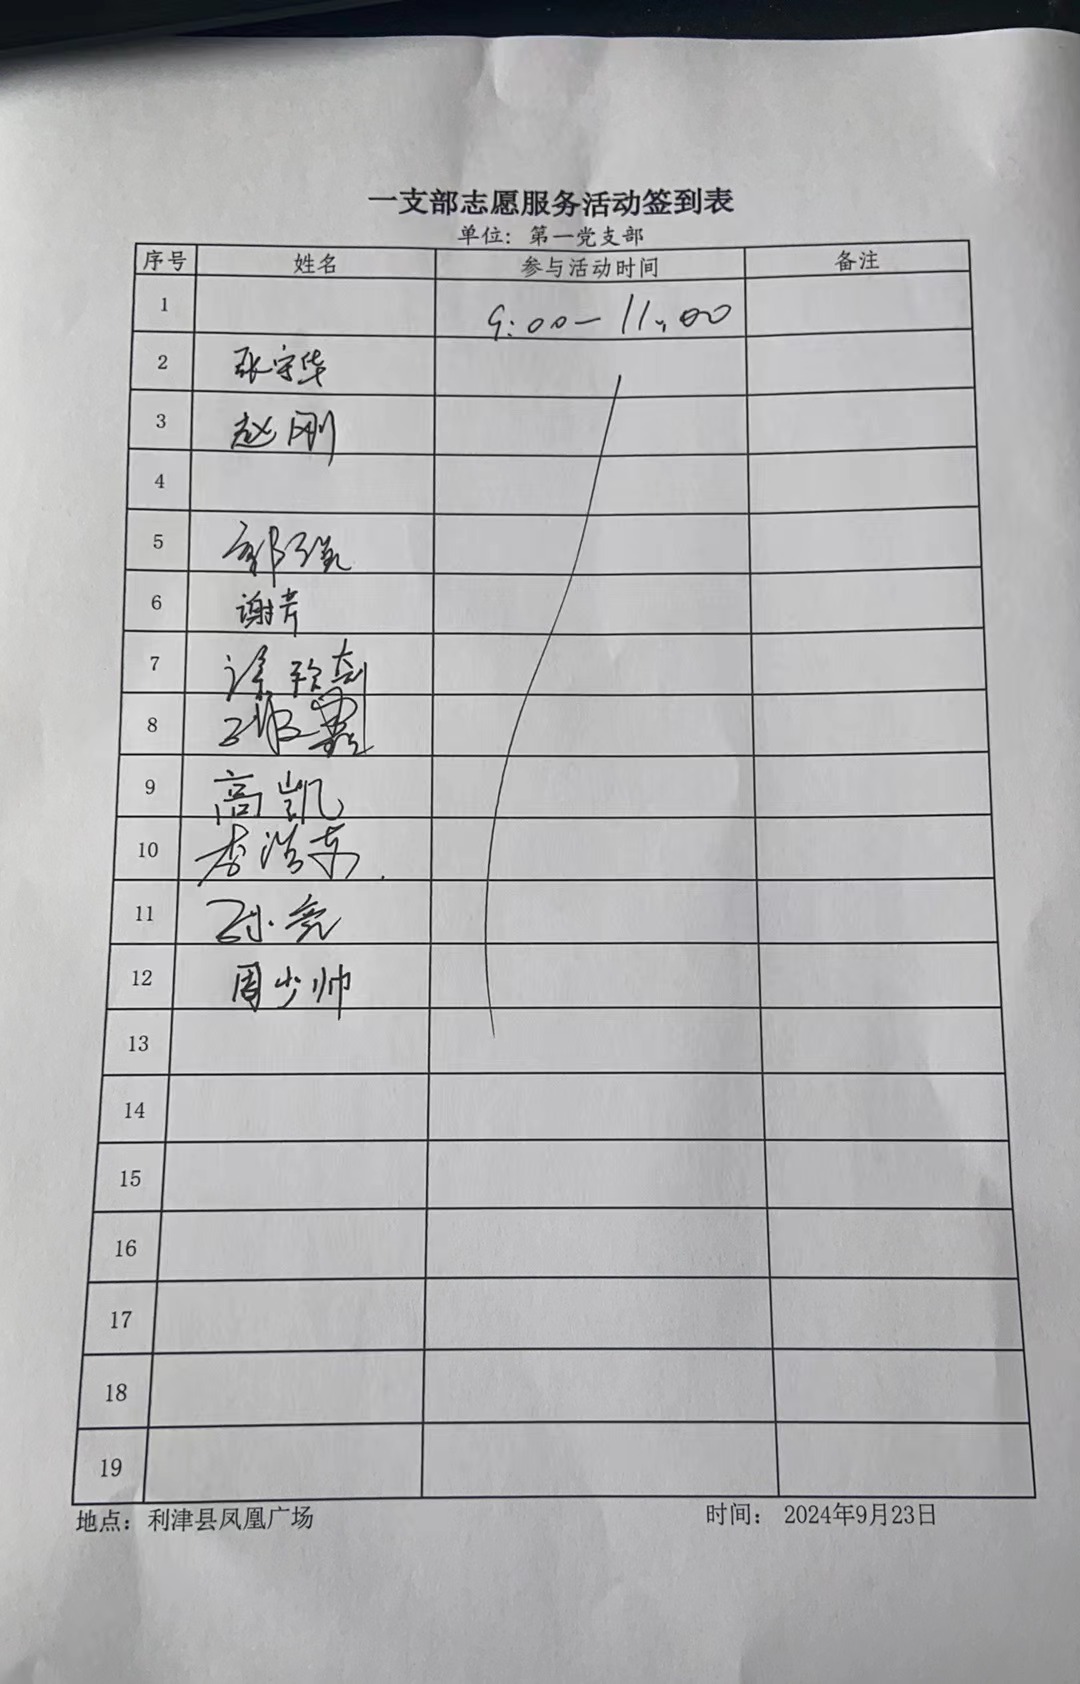 一支部志愿服务活动签到表
单位：第一党支部
序号 姓名 参与活动时间 备注
1 9:00—11:00
2 张守华
3 赵刚
4
5 郭强
6 谢芳
7 徐玲
8
9 高凯
10 李浩东
11 孙亮
12 周少帅
13
14
15
16
17
18
19
地点：利津县凤凰广场 时间： 2024年9月23日